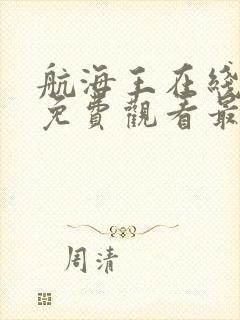 航海王在线
免費觀看最
周清